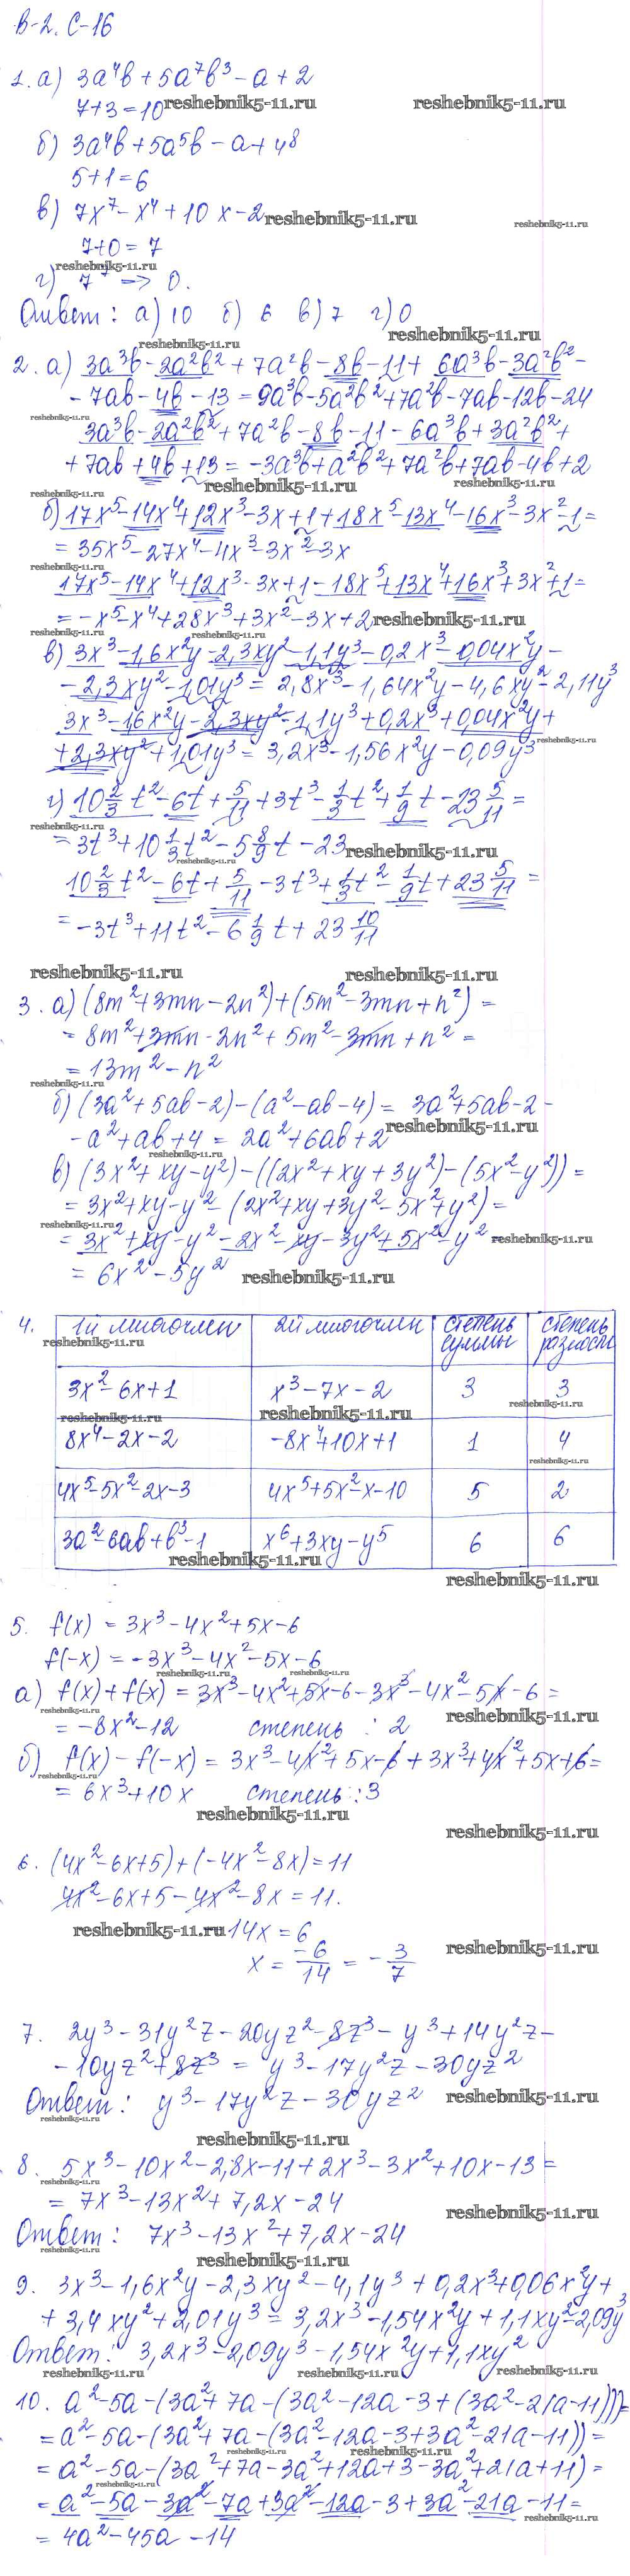 В-2. С-16
1. а) 3a⁴b + 5a⁷b³ - a + 2
7+3=10 reshebnik5-11.ru reshebnik5-11.ru
б) 3a⁴b + 5a⁵b - a + 4⁸
5+1=6
в) 7x⁷ - x⁴ + 10x - 2 reshebnik5-11.ru reshebnik5-11.ru
7+0=7
reshebnik5-11.ru
г) 7⁷ -> 0.
Ответ: а) 10 б) 6 в) 7 г) 0
reshebnik5-11.ru reshebnik5-11.ru
2. а) 3a³b - 2a²b² + 7a²b - 8b - 11 + 6a³b - 3a²b² -
- 7ab - 4b - 13 = 9a³b - 5a²b² + 7a²b - 7ab - 12b - 24
reshebnik5-11.ru
3a³b - 2a²b² + 7a²b - 8b - 11 - 6a³b + 3a²b² +
+ 7ab + 4b + 13 = -3a³b + a²b² + 7a²b + 7ab - 4b + 2
reshebnik5-11.ru reshebnik5-11.ru reshebnik5-11.ru
б) 17x⁵ - 14x⁴ + 12x³ - 3x + 1 + 18x⁵ - 13x⁴ - 16x³ - 3x² - 1 =
= 35x⁵ - 27x⁴ - 4x³ - 3x² - 3x
reshebnik5-11.ru
17x⁵ - 14x⁴ + 12x³ - 3x + 1 - 18x⁵ + 13x⁴ + 16x³ + 3x² + 1 =
= -x⁵ - x⁴ + 28x³ + 3x² - 3x + 2 reshebnik5-11.ru
reshebnik5-11.ru reshebnik5-11.ru
в) 3x³ - 1,6x²y - 2,3xy² - 1,1y³ - 0,2x³ - 0,04x²y -
- 2,3xy² - 1,01y³ = 2,8x³ - 1,64x²y - 4,6xy² - 2,11y³
3x³ - 1,6x²y - 2,3xy² - 1,1y³ + 0,2x³ + 0,04x²y +
+ 2,3xy² + 1,01y³ = 3,2x³ - 1,56x²y - 0,09y³ reshebnik5-11.ru
г) 10 2/3 t² - 6t + 5/11 + 3t³ - 1/3 t² + 1/9 t - 23 5/11 =
reshebnik5-11.ru
= 3t³ + 10 1/3 t² - 5 8/9 t - 23 reshebnik5-11.ru
reshebnik5-11.ru
10 2/3 t² - 6t + 5/11 - 3t³ + 1/3 t² - 1/9 t + 23 5/11 =
= -3t³ + 11t² - 6 1/9 t + 23 10/11
reshebnik5-11.ru reshebnik5-11.ru
3. а) (8m² + 3mn - 2n²) + (5m² - 3mn + n²) =
= 8m² + 3mn - 2n² + 5m² - 3mn + n² =
= 13m² - n²
reshebnik5-11.ru
б) (3a² + 5ab - 2) - (a² - ab - 4) = 3a² + 5ab - 2 -
- a² + ab + 4 = 2a² + 6ab + 2 reshebnik5-11.ru
reshebnik5-11.ru
в) (3x² + xy - y²) - ((2x² + xy + 3y²) - (5x² - y²)) =
= 3x² + xy - y² - (2x² + xy + 3y² - 5x² + y²) =
reshebnik5-11.ru
= 3x² + xy - y² - 2x² - xy - 3y² + 5x² - y² reshebnik5-11.ru
= 6x² - 5y² reshebnik5-11.ru
4. 1й многочлен 2й многочлен степень суммы степень разности
reshebnik5-11.ru
3x² - 6x + 1 x³ - 7x - 2 3 3
reshebnik5-11.ru reshebnik5-11.ru reshebnik5-11.ru
8x⁴ - 2x - 2 -8x⁴ + 10x + 1 1 4
reshebnik5-11.ru
4x⁵ - 5x² - 2x - 3 4x⁵ + 5x² - x - 10 5 2
3a² - 6ab + b³ - 1 x⁶ + 3xy - y⁵ 6 6
reshebnik5-11.ru
reshebnik5-11.ru
5. f(x) = 3x³ - 4x² + 5x - 6
f(-x) = -3x³ - 4x² - 5x - 6
reshebnik5-11.ru reshebnik5-11.ru
а) f(x) + f(-x) = 3x³ - 4x² + 5x - 6 - 3x³ - 4x² - 5x - 6 =
reshebnik5-11.ru reshebnik5-11.ru
= -8x² - 12 степень: 2
б) f(x) - f(-x) = 3x³ - 4x² + 5x - 6 + 3x³ + 4x² + 5x + 6 =
reshebnik5-11.ru
= 6x³ + 10x степень: 3
reshebnik5-11.ru
reshebnik5-11.ru
6. (4x² - 6x + 5) + (-4x² - 8x) = 11
4x² - 6x + 5 - 4x² - 8x = 11.
reshebnik5-11.ru -14x = 6
x = -6/14 = -3/7 reshebnik5-11.ru
7. 2y³ - 31y²z - 20yz² - 8z³ - y³ + 14y²z -
- 10yz² + 8z³ = y³ - 17y²z - 30yz²
Ответ: y³ - 17y²z - 30yz² reshebnik5-11.ru
reshebnik5-11.ru
reshebnik5-11.ru
8. 5x³ - 10x² - 2,8x - 11 + 2x³ - 3x² + 10x - 13 =
reshebnik5-11.ru
= 7x³ - 13x² + 7,2x - 24 reshebnik5-11.ru
Ответ: 7x³ - 13x² + 7,2x - 24
reshebnik5-11.ru reshebnik5-11.ru
9. 3x³ - 1,6x²y - 2,3xy² - 4,1y³ + 0,2x³ + 0,06x²y +
+ 3,4xy² + 2,01y³ = 3,2x³ - 1,54x²y + 1,1xy² - 2,09y³
Ответ: 3,2x³ - 2,09y³ - 1,54x²y + 1,1xy²
reshebnik5-11.ru reshebnik5-11.ru reshebnik5-11.ru
10. a² - 5a - (3a² + 7a - (3a² - 12a - 3 + (3a² - 21a - 11))) =
= a² - 5a - (3a² + 7a - (3a² - 12a - 3 + 3a² - 21a - 11)) =
reshebnik5-11.ru reshebnik5-11.ru
= a² - 5a - (3a² + 7a - 3a² + 12a + 3 - 3a² + 21a + 11) =
= a² - 5a - 3a² - 7a + 3a² - 12a - 3 + 3a² - 21a - 11 =
reshebnik5-11.ru
= 4a² - 45a - 14